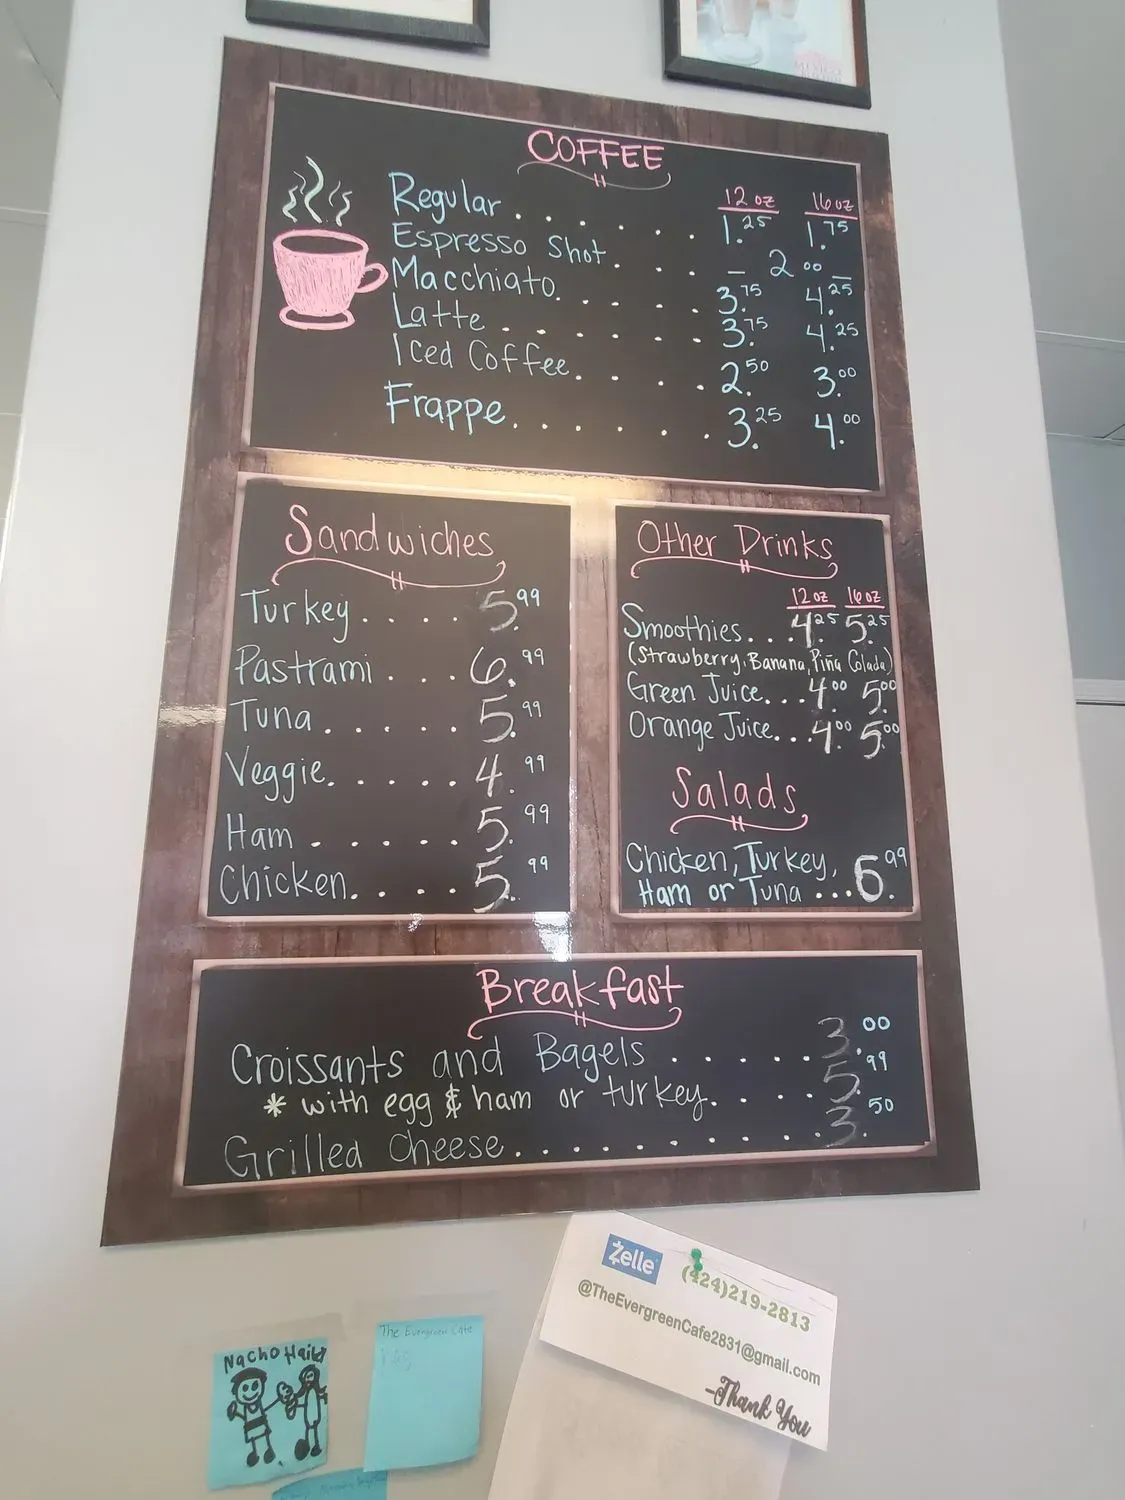 COFFEE
12 oz 16 oz
Regular . . . . . . 1.25 1.75
Espresso Shot. . . . – 2 00 –
Macchiato. . . . . . 3.75 4.25
Latte . . . . . . 3.75 4.25
Iced Coffee. . . . . 2.50 3.00
Frappe. . . . . . . 3.25 4.00
Sandwiches
Turkey . . . . . 5.99
Pastrami . . . 6.99
Tuna . . . . . 5.99
Veggie. . . . . 4.99
Ham . . . . . 5.99
Chicken. . . . . 5.99
Other Drinks
12 oz 16 oz
Smoothies. . . 4.25 5.25
(Strawberry, Banana, Piña Colada)
Green Juice. . . 4.00 5.00
Orange Juice. . . 4.00 5.00
Salads
Chicken, Turkey,
Ham or Tuna . . . 6.99
Breakfast
Croissants and Bagels . . . . . . 3.00
* with egg & ham or turkey. . . . . 5.99
Grilled Cheese. . . . . . . . . 3.50
Zelle (424)219-2813
@TheEvergreenCafe2831@gmail.com
-Thank You
Nacho
The Evergreen Cafe